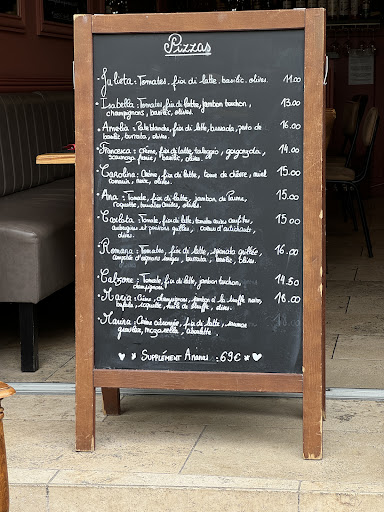 Pizzas
• Julieta : Tomates, fior di latte, basilic, olives. 11.00
• Isabella : Tomates, fior di latte, jambon torchon, 13.00
champignons, basilic, olives.
• Amelia : Pate blanche, fior di latte, burrata, pesto de 16.00
basilic, olives.
• Francesca : Crème, fior di latte, taleggio, gorgonzola, 14.00
basilic, olives
• Carolina : Crème, fior di latte, tome de chèvre, miel 15.00
romarin, noix, olives.
• Ana : Tomate, fior di latte, jambon de Parme, 15.00
roquette, tomates cerises, olives.
• Carlota : Tomate, fior di latte, tomates cerises confites, 15.00
aubergines et poivrons grillés, cœurs d'artichauts,
olives.
• Romana : Tomates, fior di latte, spianata piquante, 16.00
compotée d'oignons rouges, burrata, basilic, olives.
• Calzone : Tomate, fior di latte, jambon torchon, 14.50
champignons
• Maria : Crème, champignons, jambon à la truffe noire, 18.00
burrata, roquette, huile de truffe, olives.
• Marina : Crème citronnée, fior di latte, saumon
gravelax, mozzarella, ciboulette.
♥ * SUPPLÉMENT ANANAS : 69€ * ♥